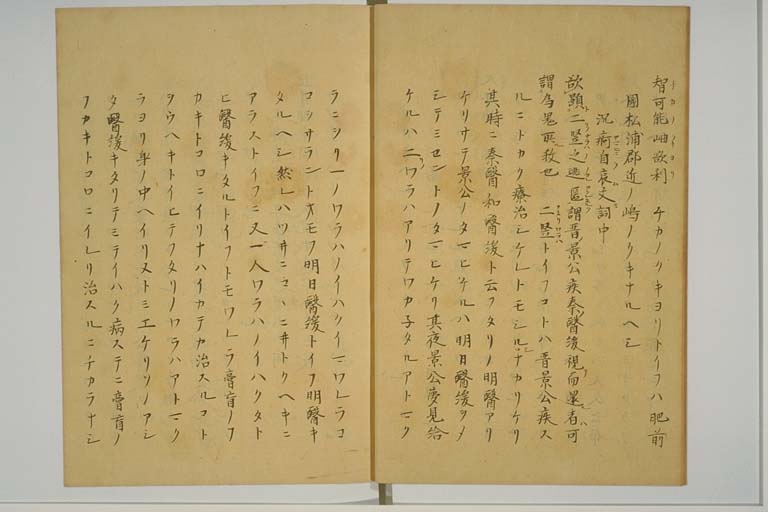 智可能岫欲利 チカノクキヨリトイフハ肥前
國松浦郡近ノ嶋ノクキナルヘシ
沉痾自哀文詞中
欲顯二竪之逃匿謂晋景公疾秦醫後視而還者可
謂為鬼所敎也 二竪トイフコトハ晋景公疾ス
ルニトカク療治シケレトモシルシナカリケリ
其時ニ秦醫和醫後ト云フタリノ明醫アリ
ケリサテ景公ノタマヒケルハ明日醫後ヲメ
シテミセントノタマヒケリ其夜景公夢見給
ケルハ二ワラハアリテワカ子タルアトマク
ラニシリ一ノワラハノイハクイマワレラコ
コシサラント才モフ明日醫後トイフ明醫キ
タルヘシ然レハツ井ニココニ井トクヘキニ
アラストイフニ又一人ワラハノイハクタト
ヒ醫後キタルトイフトモワレラ膏肓ノフ
カキトコロニイリナハイカテカ治スルコト
ヲウヘキトイヒテフタリノワラハアトマク
ラヨリ身ノ中ヘイリヌトミエケリソノアシ
タ醫後キタリテミテイハク病ステニ膏肓ノ
フカキトコロニイレリ治スルニチカラナシ